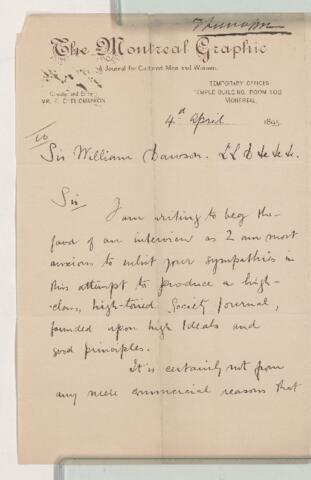 Thomson
The Montreal Graphic
A Journal for Cultured Men and Women.
TEMPORARY OFFICES
TEMPLE BUILDING, ROOM
MONTREAL,
4th April 1895
To
Sir William Dawson. LL D &c &c &c.
Sir I am writing to beg the
favor of an interview as I am most
anxious to enlist your sympathies in
this attempt to produce a high-
-class, high-toned Society Journal,
founded upon high Ideals and
good principles.
It is certainly not from
any mere commercial reasons that